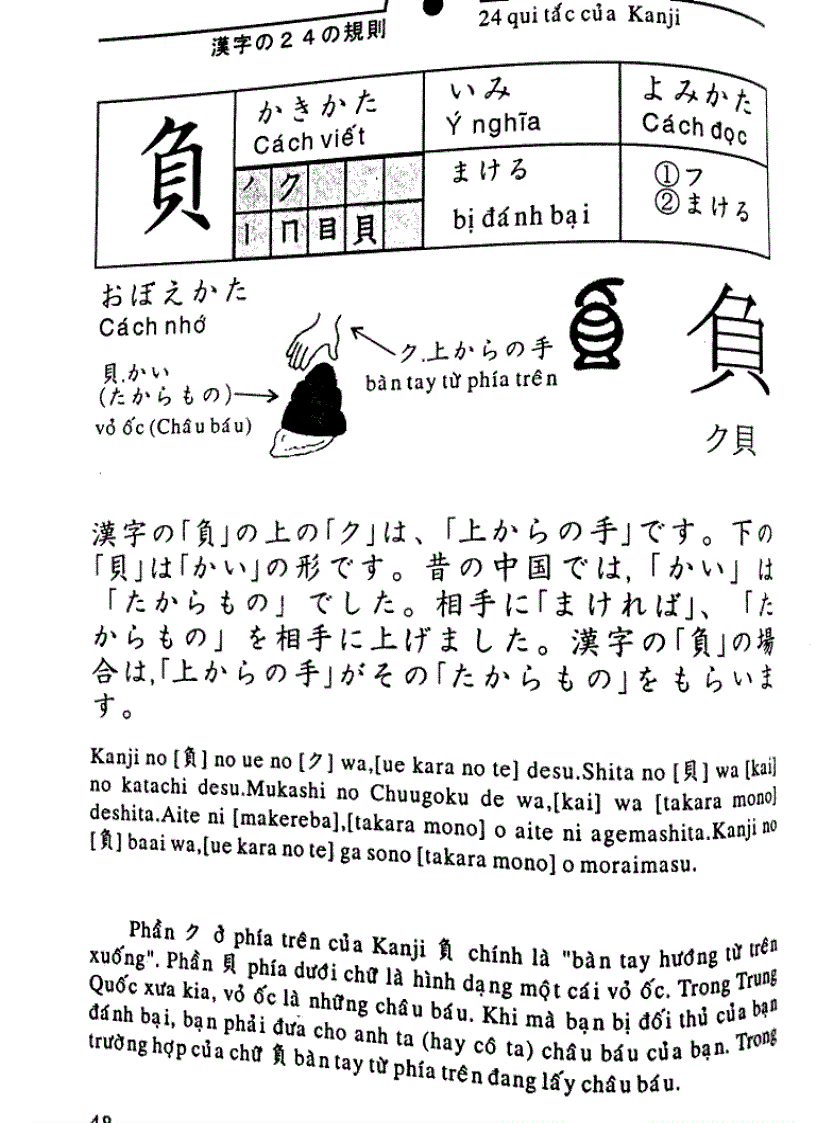 漢字の24の規則
24 qui tắc của Kanji
負
かきかた
Cách viết
ノ ク
丨 冂 目 貝
いみ
Ý nghĩa
まける
bị đánh bại
よみかた
Cách đọc
①フ
②まける
おぼえかた
Cách nhớ
貝.かい
(たからもの)
vỏ ốc (Châu báu)
ク.上からの手
bàn tay từ phía trên
負
ク貝
漢字の「負」の上の「ク」は、「上からの手」です。下の
「貝」は「かい」の形です。昔の中国では,「かい」は
「たからもの」でした。相手に「まければ」、「た
からもの」を相手に上げました。漢字の「負」の場
合は,「上からの手」がその「たからもの」をもらいま
す。
Kanji no [負] no ue no [ク] wa,[ue kara no te] desu.Shita no [貝] wa [kai]
no katachi desu.Mukashi no Chuugoku de wa,[kai] wa [takara mono]
deshita.Aite ni [makereba],[takara mono] o aite ni agemashita.Kanji no
[負] baai wa,[ue kara no te] ga sono [takara mono] o moraimasu.
Phần ク ở phía trên của Kanji 負 chính là "bàn tay hướng từ trên
xuống". Phần 貝 phía dưới chữ là hình dạng một cái vỏ ốc. Trong Trung
Quốc xưa kia, vỏ ốc là những châu báu. Khi mà bạn bị đối thủ của bạn
đánh bại, bạn phải đưa cho anh ta (hay cô ta) châu báu của bạn. Trong
trường hợp của chữ 負 bàn tay từ phía trên đang lấy châu báu.
48